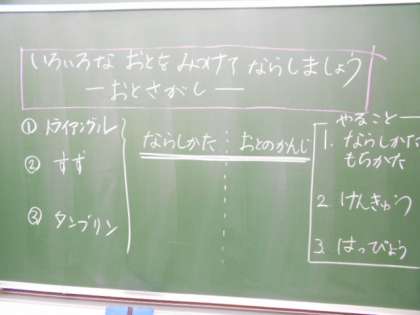 いろいろな おとを みつけて ならしましょう
―おとさがし―
① トライアングル
② すず
③ タンブリン
ならしかた おとのかんじ
やること
1. ならしかた
もちかた
2. けんきゅう
3. はっぴょう